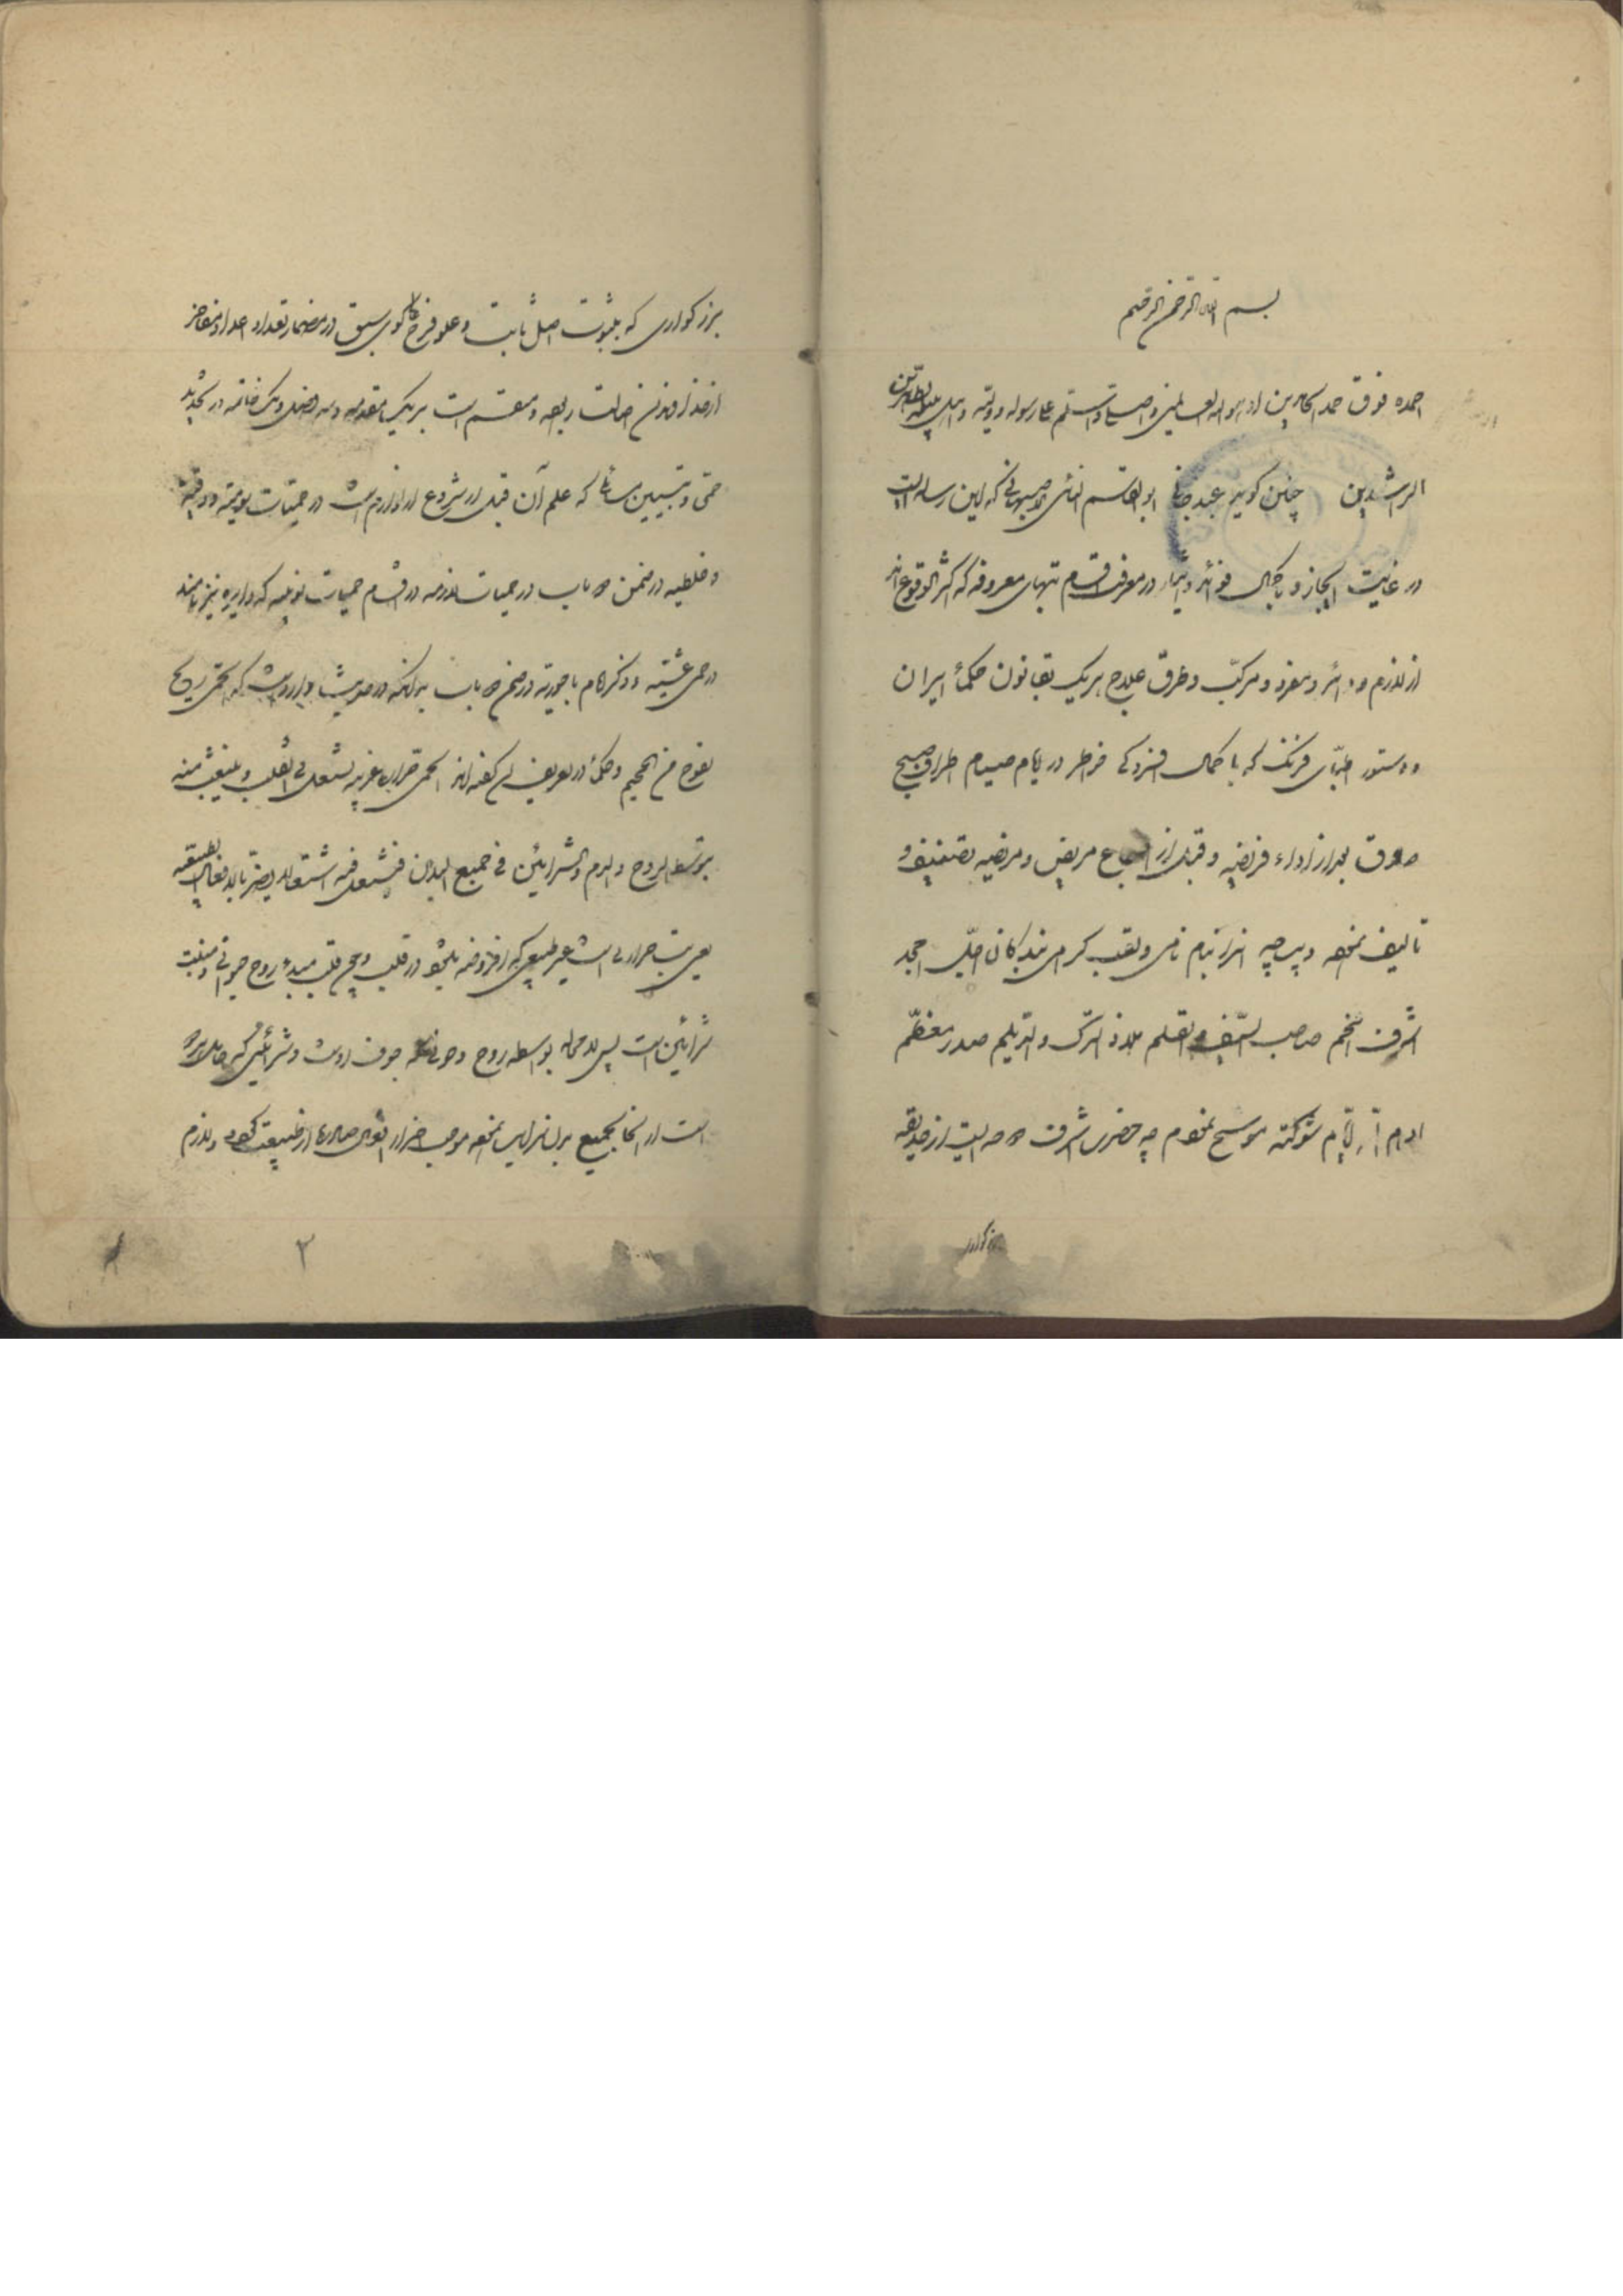 بسم الله الرحمن الرحیم
احمده فوق حمد الحامدین اذ هو اله العالمین و اصلی و اسلم علی رسوله و ولیه و اهل بیته الطاهرین
الراشدین چنین گوید عبد جانی ابوالقاسم نائی اصبهانی که این رساله ایست
در غایت ایجاز و اجمال در معرفت اقسام تبهای معروفه که اکثر الوقوع اند
از لازم و دائر و مفرد و مرکب و طرق علاج هر یک بقانون حکماء ایران
و دستور اطبای فرنگ که با کمال افسردگی خاطر در ایام صیام اطراف صبح
صادق بعد از اداء فریضه و قبل از اجتماع مریض و مریضه تصنیف و
تالیف نموده دیباچه اش را بنام نامی و لقب گرامی بندگان اجل امجد
اشرف افخم صاحب السیف و القلم ملاذ الترک و الدیلم صدر معظم
ادام الله ایام شوکته موشح نمودم چه حضرت اشرف از حدیقه
بزرگوار
بزرگواری که بثبوت اصل ثابت و علو فرع گوی سبق در مضمار تعداد اعداد مفاخر
از و منقسم است بر یک مقدمه و سه فصل و یک خاتمه در تحدید
حمی و تبیین مسائلی که علم آن قبل از شروع از لوازم است در حمیات یومیه و دقیه
و خلطیه در ضمن باب در حمیات لازمه در اقسام حمیات نوبیه که دایره نیز نامند
در حمی غشیه و ذکر در ضمن باب بدانکه در حدیث وارد است که الحمی ریح
تفوح من الجحیم و حکماء در تعریف آن گفته اند الحمی حرارة غریبه تشتعل فی القلب و ینبعث منه
بتوسط الروح و الدم و الشرائین فی جمیع البدن فتشتعل فیه اشتعالا یضر بالافعال الطبیعیه
یعنی تب حرارتی است غیر طبیعی که افروخته میشود در قلب و چون قلب مبدء روح حیوانی و منبت
شرائین است پس لامحاله بواسطه روح و خونی که جوف اوست و شرائینی که حامل
است از آنجا بجمیع بدن سرایت نموده موجب اضرار افعال صادره از طبیعت گردد و لازم
۲